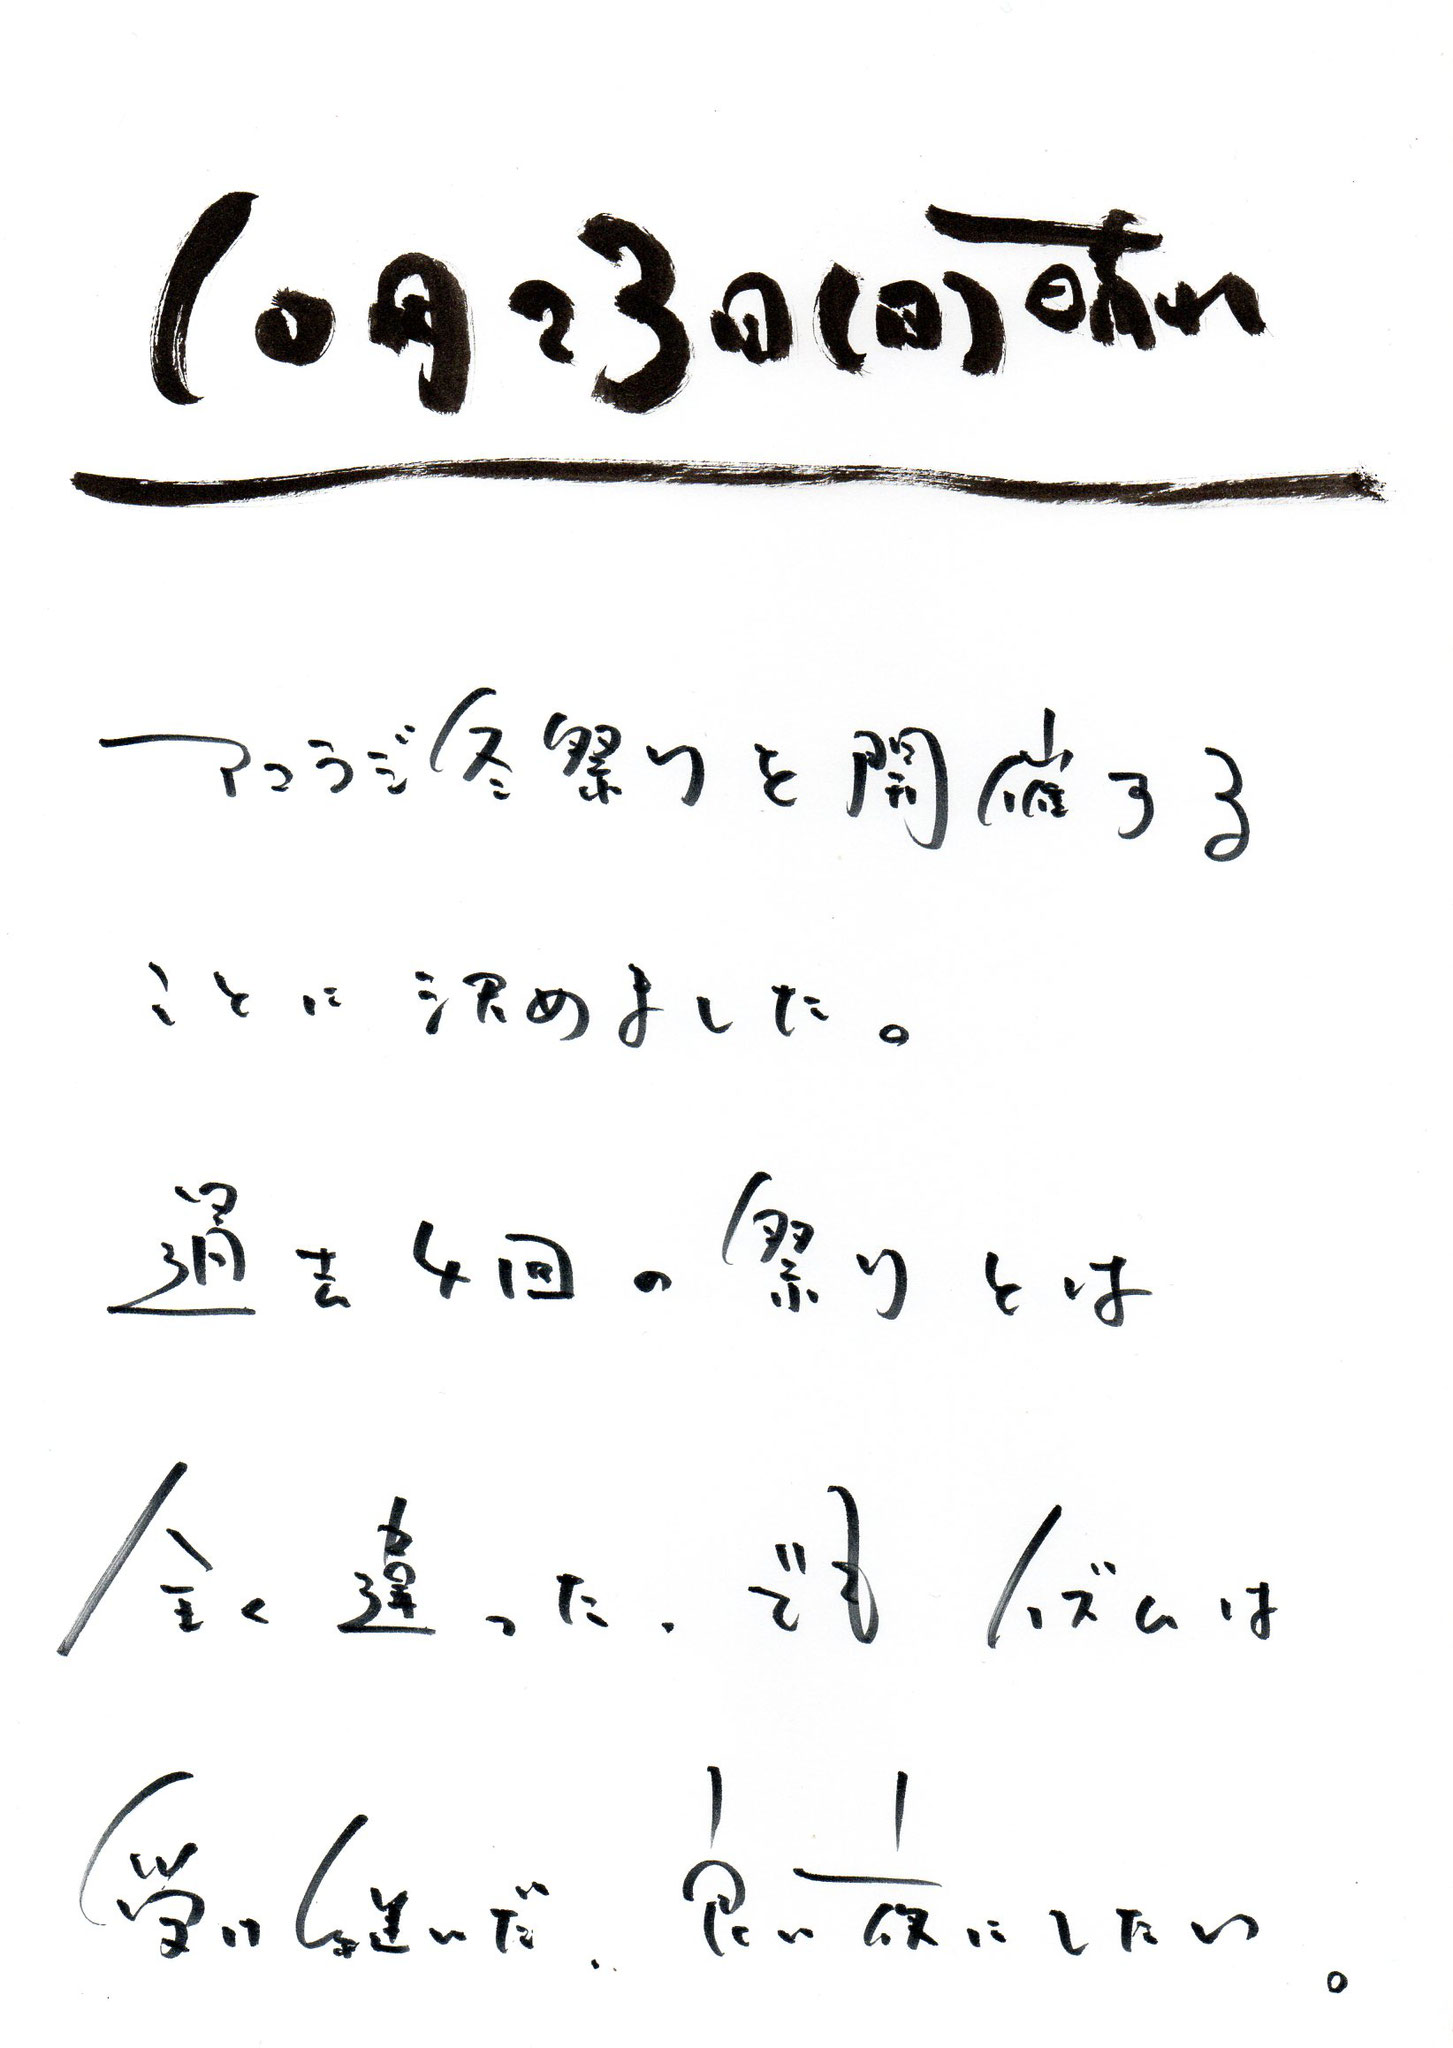 10月23日(日)晴れ
アコラジ冬祭りを開催する
ことに決めました。
過去4回の祭りとは
全く違った、でもイズムは
受け継いだ、良い夜にしたい。